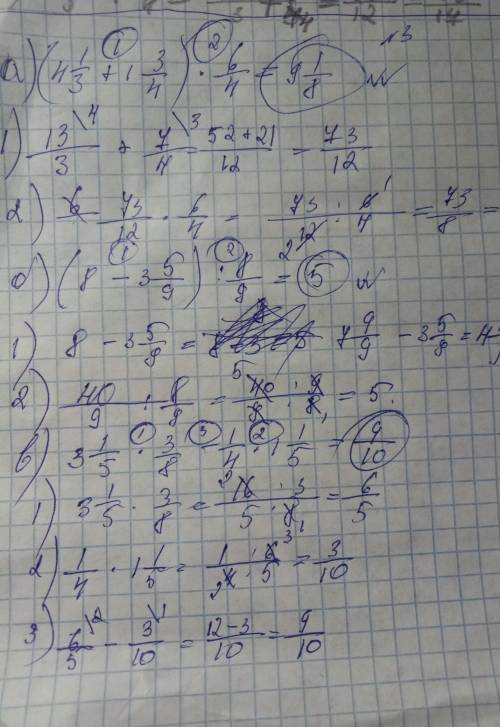 №3
а) (4 1/3 + 1 3/4) · 6/4 = 9 1/8
1) 13/3 + 7/4 = 52+21/12 = 73/12
2) 73/12 · 6/4 = 73 · 6/12 · 4 = 73/8 =
б) (8 − 3 5/9) : 8/9 = 5
1) 8 − 3 5/9 = 7 9/9 − 3 5/9 = 4
2) 40/9 : 8/9 = 40 · 9/9 · 8 = 5.
в) 3 1/5 · 3/8 − 1/4 · 1 1/5 = 9/10
1) 3 1/5 · 3/8 = 16 · 3/5 · 8 = 6/5
2) 1/4 · 1 1/5 = 1 · 6/4 · 5 = 3/10
3) 6/5 − 3/10 = 12−3/10 = 9/10